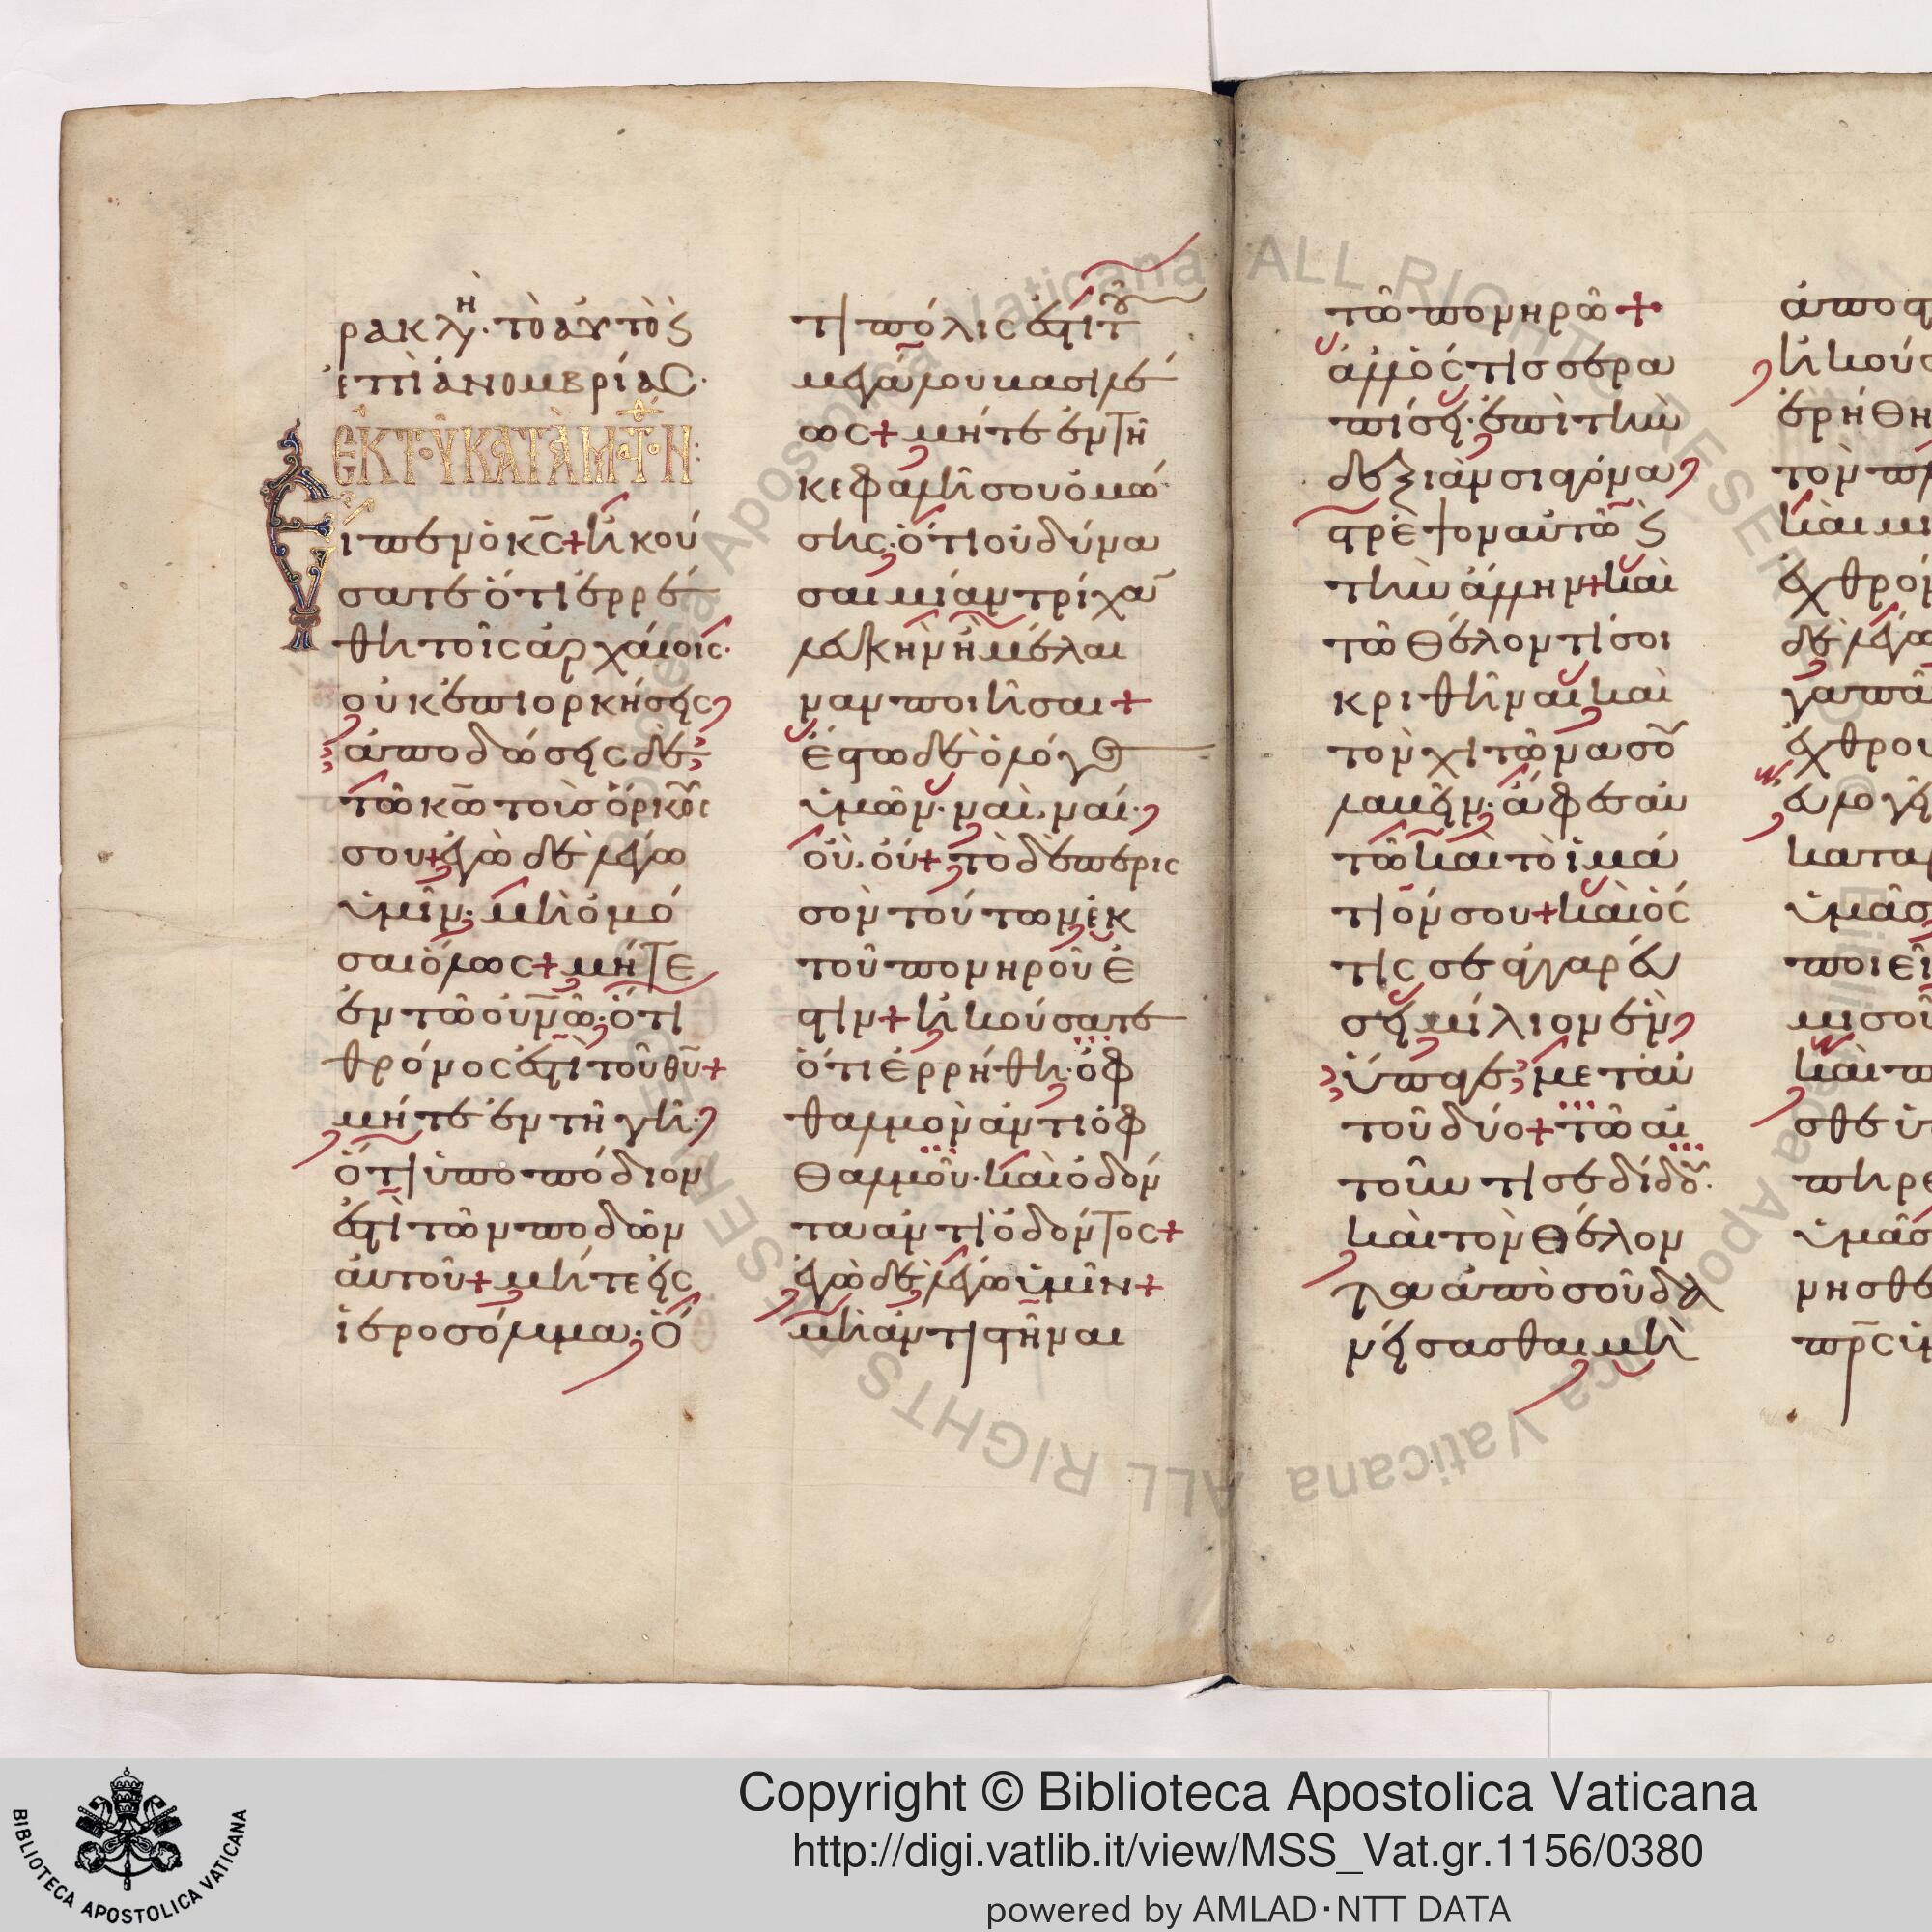 ρακλη· τὸ αὐτὸ ϗ
ἐπὶ ἀνομβρίας·
ἐκ τοῦ κατὰ Ματθ(αῖ)ον:
Εἶπεν ὁ κ̅ς̅ + ἠκού
σατε ὅτι ἐρρέ
θη τοῖς ἀρχαίοις·
οὐκ ἐπιορκήσεις
ἀποδώσεις δὲ
τῶ κ̅ω̅ τοὺς ὅρκους
σου + ἐγὼ δὲ λέγω
ὑμῖν· μὴ ὀμό
σαι ὅλως + μήτε
ἐν τῶ οὐν̅ῶ· ὅτι
θρόνος ἐστὶ τοῦ θ̅υ̅ +
μήτε ἐν τῆ γῆ·
ὅτι ὑποπόδιον
ἐστὶ τῶν ποδῶν
αὐτοῦ + μήτε εἰς
ἱεροσόλυμα· ὅ
τι πόλις ἐστὶ τοῦ
μεγάλου βασιλέ
ως + μήτε ἐν τῆ
κεφαλῆ σου ὀμό
σης· ὅτι οὐ δύνα
σαι μίαν τρίχα
λευκὴν ἢ μέλαι
ναν ποιῆσαι +
ἔστω δὲ ὁ λόγος
ὑμῶν· ναὶ, ναί·
οὒ, οὔ + τὸ δὲ περισ
σὸν τούτων ἐκ
τοῦ πονηροῦ ἐ
στιν + ἠκούσατε
ὅτι ἐρρήθη· ὀφ
θαλμὸν ἀντὶ ὀφ
θαλμοῦ· καὶ ὀδόν
τα ἀντὶ ὀδόντος +
ἐγὼ δὲ λέγω ὑμῖν +
μὴ ἀντιστῆναι
τῶ πονηρῶ +
ἀλλ' ὅστις σε ρα
πίσει· ἐπὶ τὴν
δεξιὰν σιαγόνα
στρέψον αὐτῶ ϗ
τὴν ἄλλην + καὶ
τῶ θέλοντί σοι
κριθῆναι καὶ
τὸν χιτῶνα σου
λαβεῖν· ἄφες αὐ
τῶ καὶ τὸ ἱμά
τιόν σου + καὶ ὅσ
τις σε ἀγγαρεύ
σει μίλιον ἓν
ὕπαγε μετ' αὐ
τοῦ δύο + τῶ αἰ
τοῦντί σε δίδου·
καὶ τὸν θέλον
τα ἀπὸ σοῦ δα
νείσασθαι μὴ
ἀποσ
ἠκούσ
ἐρήθη
τὸν πλ
καὶ μι
ἐχθρόν
δὲ λέγω
γαπᾶ
ἐχθροὺ
εὐλογεῖ
καταρ
ὑμᾶς
ποιεῖ
μισοῦ
καὶ π
σθε ὑ
πηρε
ὑμᾶς
νησθε
π̅ρ̅ς̅ ὑμ
Copyright © Biblioteca Apostolica Vaticana
http://digi.vatlib.it/view/MSS_Vat.gr.1156/0380
powered by AMLAD·NTT DATA
BIBLIOTECA APOSTOLICA VATICANA